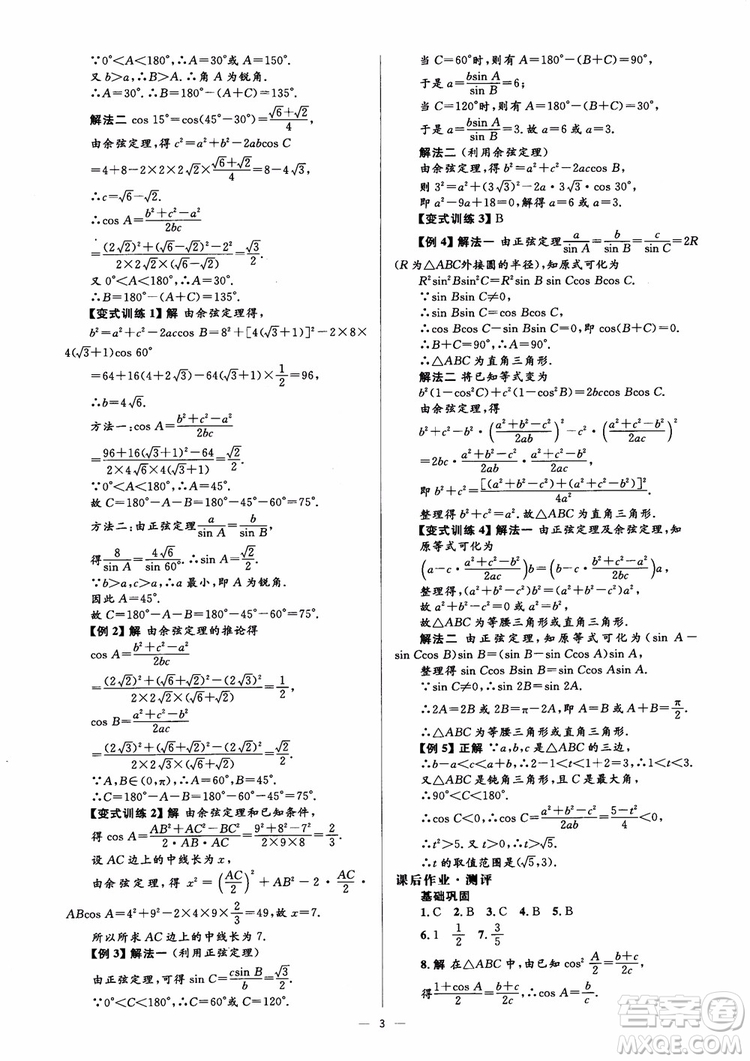 ∵0°<A<180°,∴A=30°或A=150°.
又b>a,∴B>A.∴角A为锐角.
∴A=30°.∴B=180°-(A+C)=135°.
解法二 cos 15°=cos(45°-30°)=(√6+√2)/4,
由余弦定理,得c²=a²+b²-2abcos C
=4+8-2×2×2√2×(√6+√2)/4=8-4√3,
∴c=√6-√2.
∴cos A=(b²+c²-a²)/2bc
=((2√2)²+(√6-√2)²-2²)/(2×2√2×(√6-√2))=√3/2
又0°<A<180°,∴A=30°.
∴B=180°-(A+C)=135°.
【变式训练1】解 由余弦定理得,
b²=a²+c²-2accos B=8²+[4(√3+1)]²-2×8×
4(√3+1)cos 60°
=64+16(4+2√3)-64(√3+1)×1/2=96,
∴b=4√6.
方法一:cos A=(b²+c²-a²)/2bc
=(96+16(√3+1)²-64)/(2×4√6×4(√3+1))=√2/2.
∵0°<A<180°,∴A=45°.
故C=180°-A-B=180°-45°-60°=75°.
方法二:由正弦定理a/sin A=b/sin B,
得8/sin A=4√6/sin 60°.∴sin A=√2/2.
∵b>a,c>a,∴a最小,即A为锐角.
因此A=45°.
故C=180°-A-B=180°-45°-60°=75°.
【例2】解 由余弦定理的推论得
cos A=(b²+c²-a²)/2bc
=((2√2)²+(√6+√2)²-(2√3)²)/(2×2√2×(√6+√2))=1/2.
cos B=(a²+c²-b²)/2ac
=((2√3)²+(√6+√2)²-(2√2)²)/(2×2√3×(√6+√2))=√2/2.
∵A,B∈(0,π),∴A=60°,B=45°.
∴C=180°-A-B=180°-60°-45°=75°.
【变式训练2】解 由余弦定理和已知条件,
得cos A=(AB²+AC²-BC²)/(2·AB·AC)=(9²+8²-7²)/(2×9×8)=2/3.
设AC边上的中线长为x,
由余弦定理,得x²=(AC/2)²+AB²-2·AC/2·
ABcos A=4²+9²-2×4×9×2/3=49.∴x=7.
所以所求AC边上的中线长为7.
【例3】解法一(利用正弦定理)
由正弦定理,可得sin C=csin B/b=√3/2.
∵0°<C<180°,∴C=60°或C=120°.
当C=60°时,则A=180°-(B+C)=90°,
于是a=bsin A/sin B=6;
当C=120°时,则A=180°-(B+C)=30°,
于是a=bsin A/sin B=3.故a=6或a=3.
解法二(利用余弦定理)
由余弦定理,得b²=a²+c²-2accos B,
则3²=a²+(3√3)²-2a·3√3·cos 30°,
即a²-9a+18=0,解得a=6或a=3.
【变式训练3】B
【例4】解法一 由正弦定理a/sin A=b/sin B=c/sin C=2R
(R为△ABC外接圆的半径),知原式可化为
R²sin²Bsin²C=R²sin Bsin Ccos Bcos C.
∵sin Bsin C≠0,
∴sin Bsin C=cos Bcos C,即cos(B+C)=0.
∴B+C=90°,即A=90°.
∴△ABC为直角三角形.
解法二 将已知等式变为
b²(1-cos²C)+c²(1-cos²B)=2bccos Bcos C.
由余弦定理,得
b²+c²-b²·((a²+b²-c²)/2ab)²-c²·((a²+c²-b²)/2ac)²
=2bc·(a²+b²-c²)/2ab·(a²+c²-b²)/2ac,
即b²+c²=[(a²+b²-c²)+(a²+c²-b²)]²/4a².
整理得b²+c²=a².∴△ABC为直角三角形.
【变式训练4】解法一 由正弦定理及余弦定理,知
原等式可化为
(a-c·(a²+c²-b²)/2ac)b=(b-c·(b²+c²-a²)/2bc)a,
整理得(a²+b²-c²)b²=(a²+b²-c²)a².
故a²+b²-c²=0或a²=b².
故△ABC为等腰三角形或直角三角形.
解法二 由正弦定理,知原等式可化为(sin A-
sin Ccos B)sin B=(sin B-sin Ccos A)sin A,
整理得sin Bcos Bsin C=sin Ccos Asin A.
∵sin C≠0,∴sin 2B=sin 2A.
∴2A=2B或2B=π-2A,即A=B或A+B=π/2.
∴△ABC为等腰三角形或直角三角形.
【例5】正解 ∵a,b,c是△ABC的三边,
∴b-a<c<a+b.∴2-1<t<1+2=3.∴1<t<3.
又△ABC是钝角三角形,且C是最大角,
∴90°<C<180°.
∴cos C<0,∴cos C=(a²+b²-c²)/2ab=(5-t²)/4<0.
∴t²>5.又t>0,∴t>√5.
∴t的取值范围是(√5,3).
课后作业·测评
基础巩固
1.C 2.B 3.C 4.B 5.B
6.1 1/2 7.3/5
8.解 在△ABC中,由已知cos²A/2=(b+c)/2c,
得(1+cos A)/2=(b+c)/2c,∴cos A=b/c.
3
答案圈
MXQE.COM